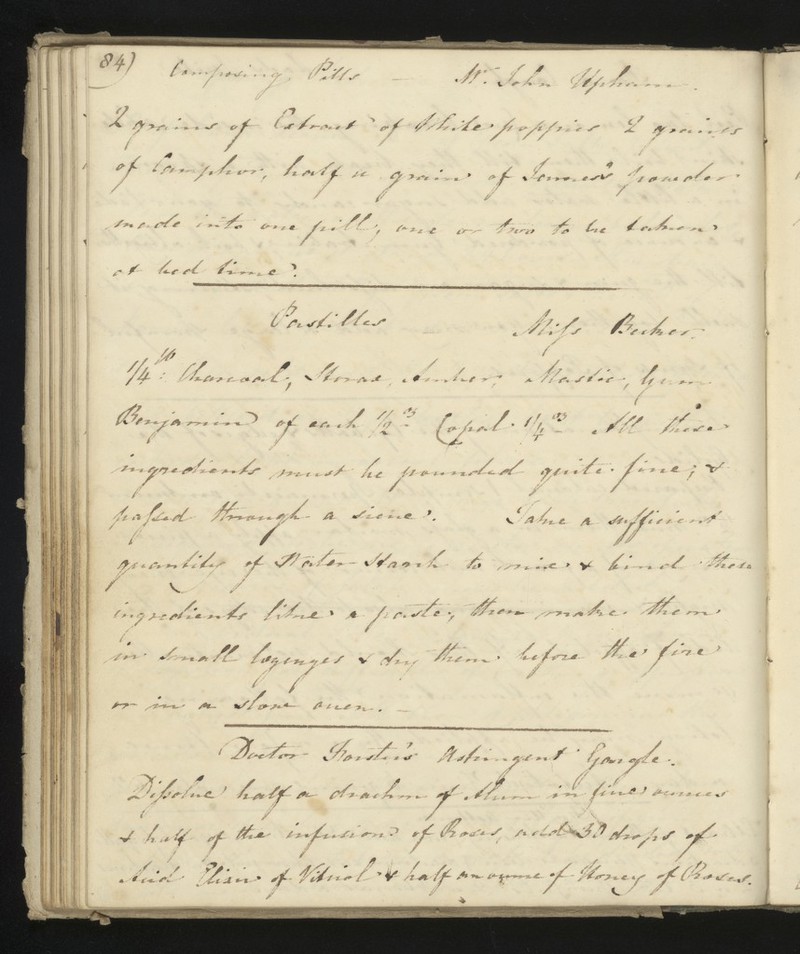 84)
Composing Pills — Mr. John Upham.
2 grains of Extract of White poppies 2 grains
of Camphor, half a grain of James's powder
made into one pill, one or two to be taken
at bed time.
Pastilles Miss Beeker.
1/4 lb: Charcoal, Storax, Amber, Mastic, Gum
Benjamin of each 1/2 oz Copal 1/4 oz All these
ingredients must be pounded quite fine; &
passed through a sieve. Take a sufficient
quantity of Water Starch to mix & bind these
ingredients like a paste, then make them
in small lozenges & dry them before the fire
or in a slow oven. —
Doctor Forster's Astringent Gargle.
Dissolve half a drachm of Alum in five ounces
& half of the infusion of Roses, add 30 drops of
Acid Elixir of Vitriol & half an ounce of Honey of Roses.